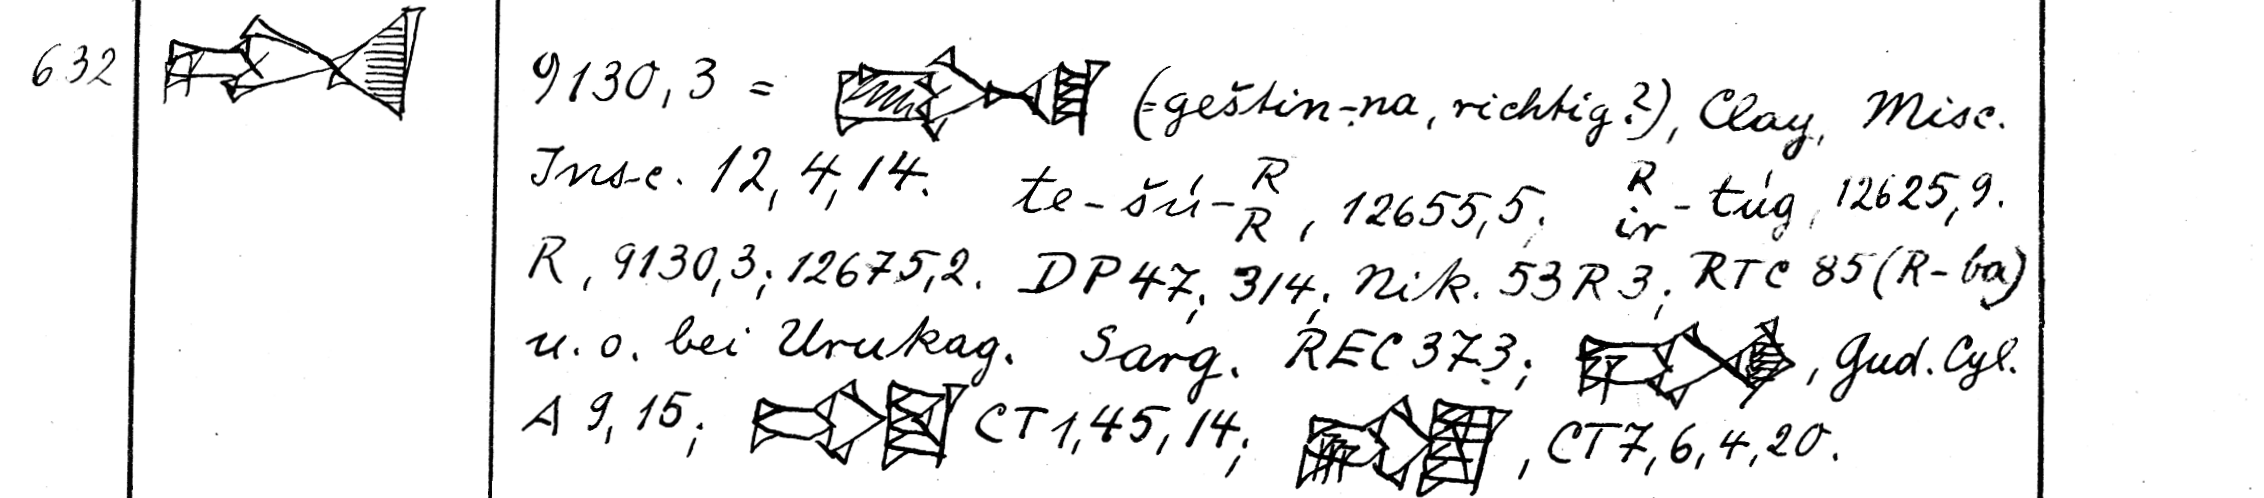 632
9130,3 = (=geštin-na, richtig?), Clay, Misc.
Insc. 12, 4, 14. te-šú-R R, 12655,5. R ir-túg, 12625,9.
R, 9130,3; 12675,2. DP 47; 314; Nik. 53 R 3; RTC 85 (R-ba)
u. o. bei Urukag. Sarg. REC 373; , Gud. Cyl.
A 9, 15; CT 1, 45, 14; , CT 7, 6, 4, 20.